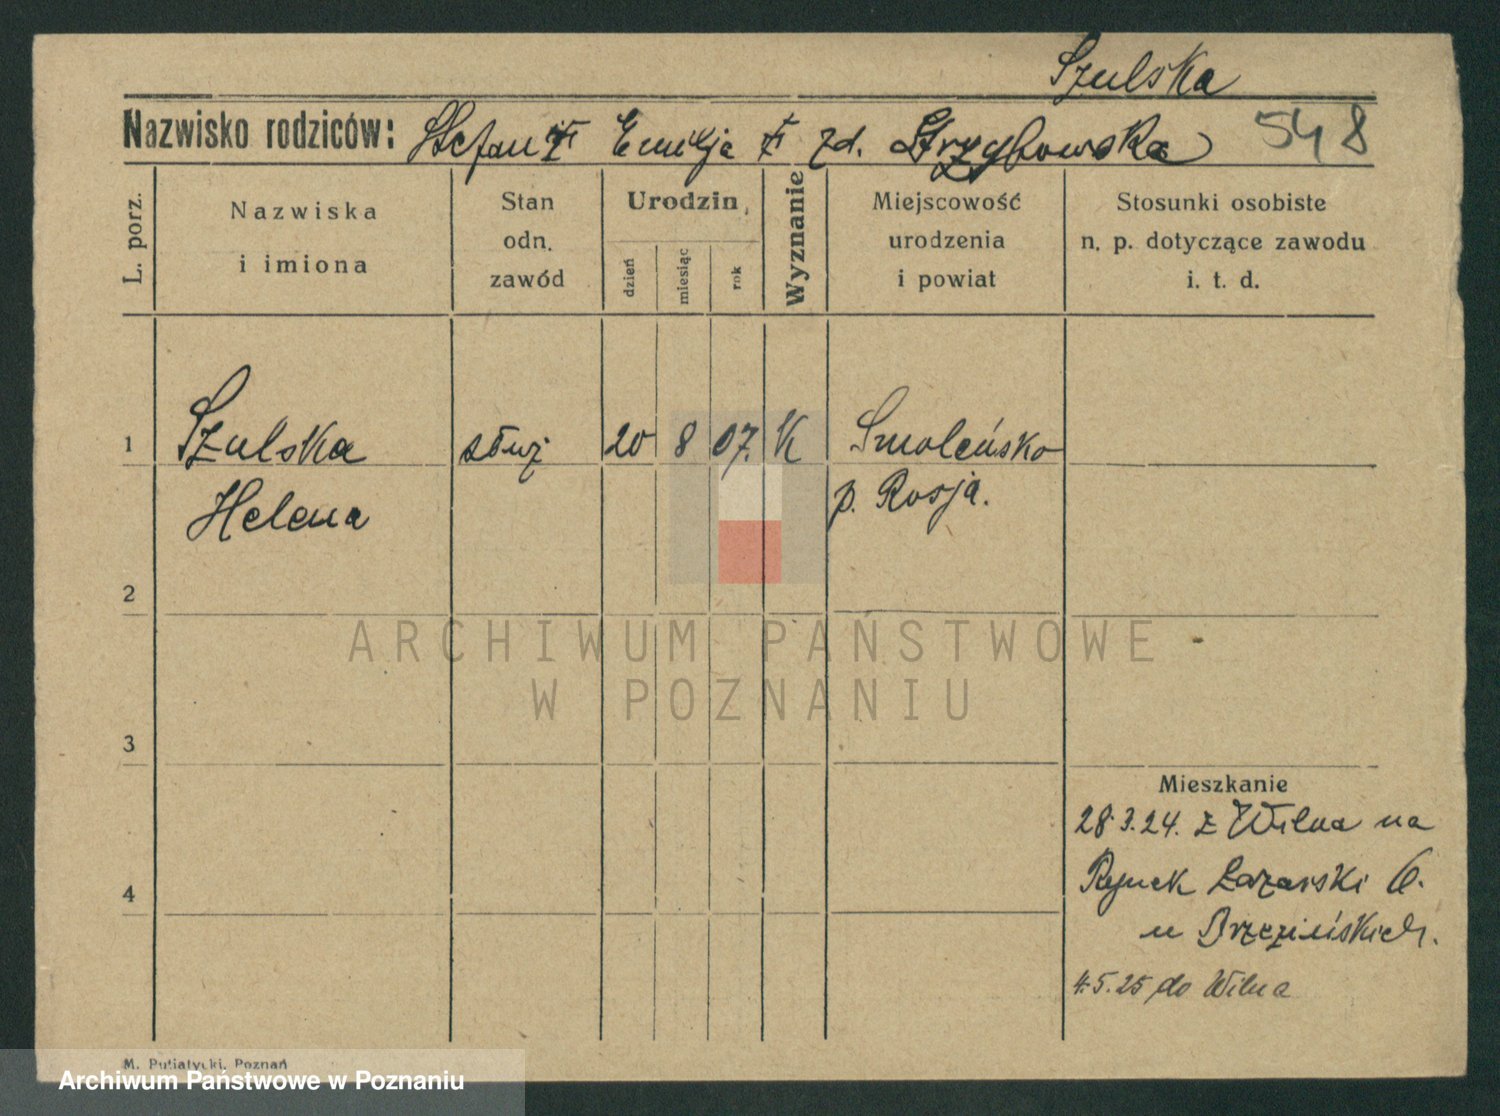 Szulska
Nazwisko rodziców: Stefan Emilja zd. Strzyżowska 548
L. porz.
Nazwiska
i imiona
Stan
odn.
zawód
Urodzin
dzień
miesiąc
rok
Wyznanie
Miejscowość
urodzenia
i powiat
Stosunki osobiste
n. p. dotyczące zawodu
i. t. d.
1 Szulska służ 20 8 07. K Smoleńsko
Helena p. Rosja.
2
ARCHIWUM PAŃSTWOWE
W POZNANIU
3
Mieszkanie
28.3.24. z Wilna na
4 Rynek Łazarski 6.
u Brzezińskich.
4.5.25 do Wilna
M. Putiatycki, Poznań
Archiwum Państwowe w Poznaniu